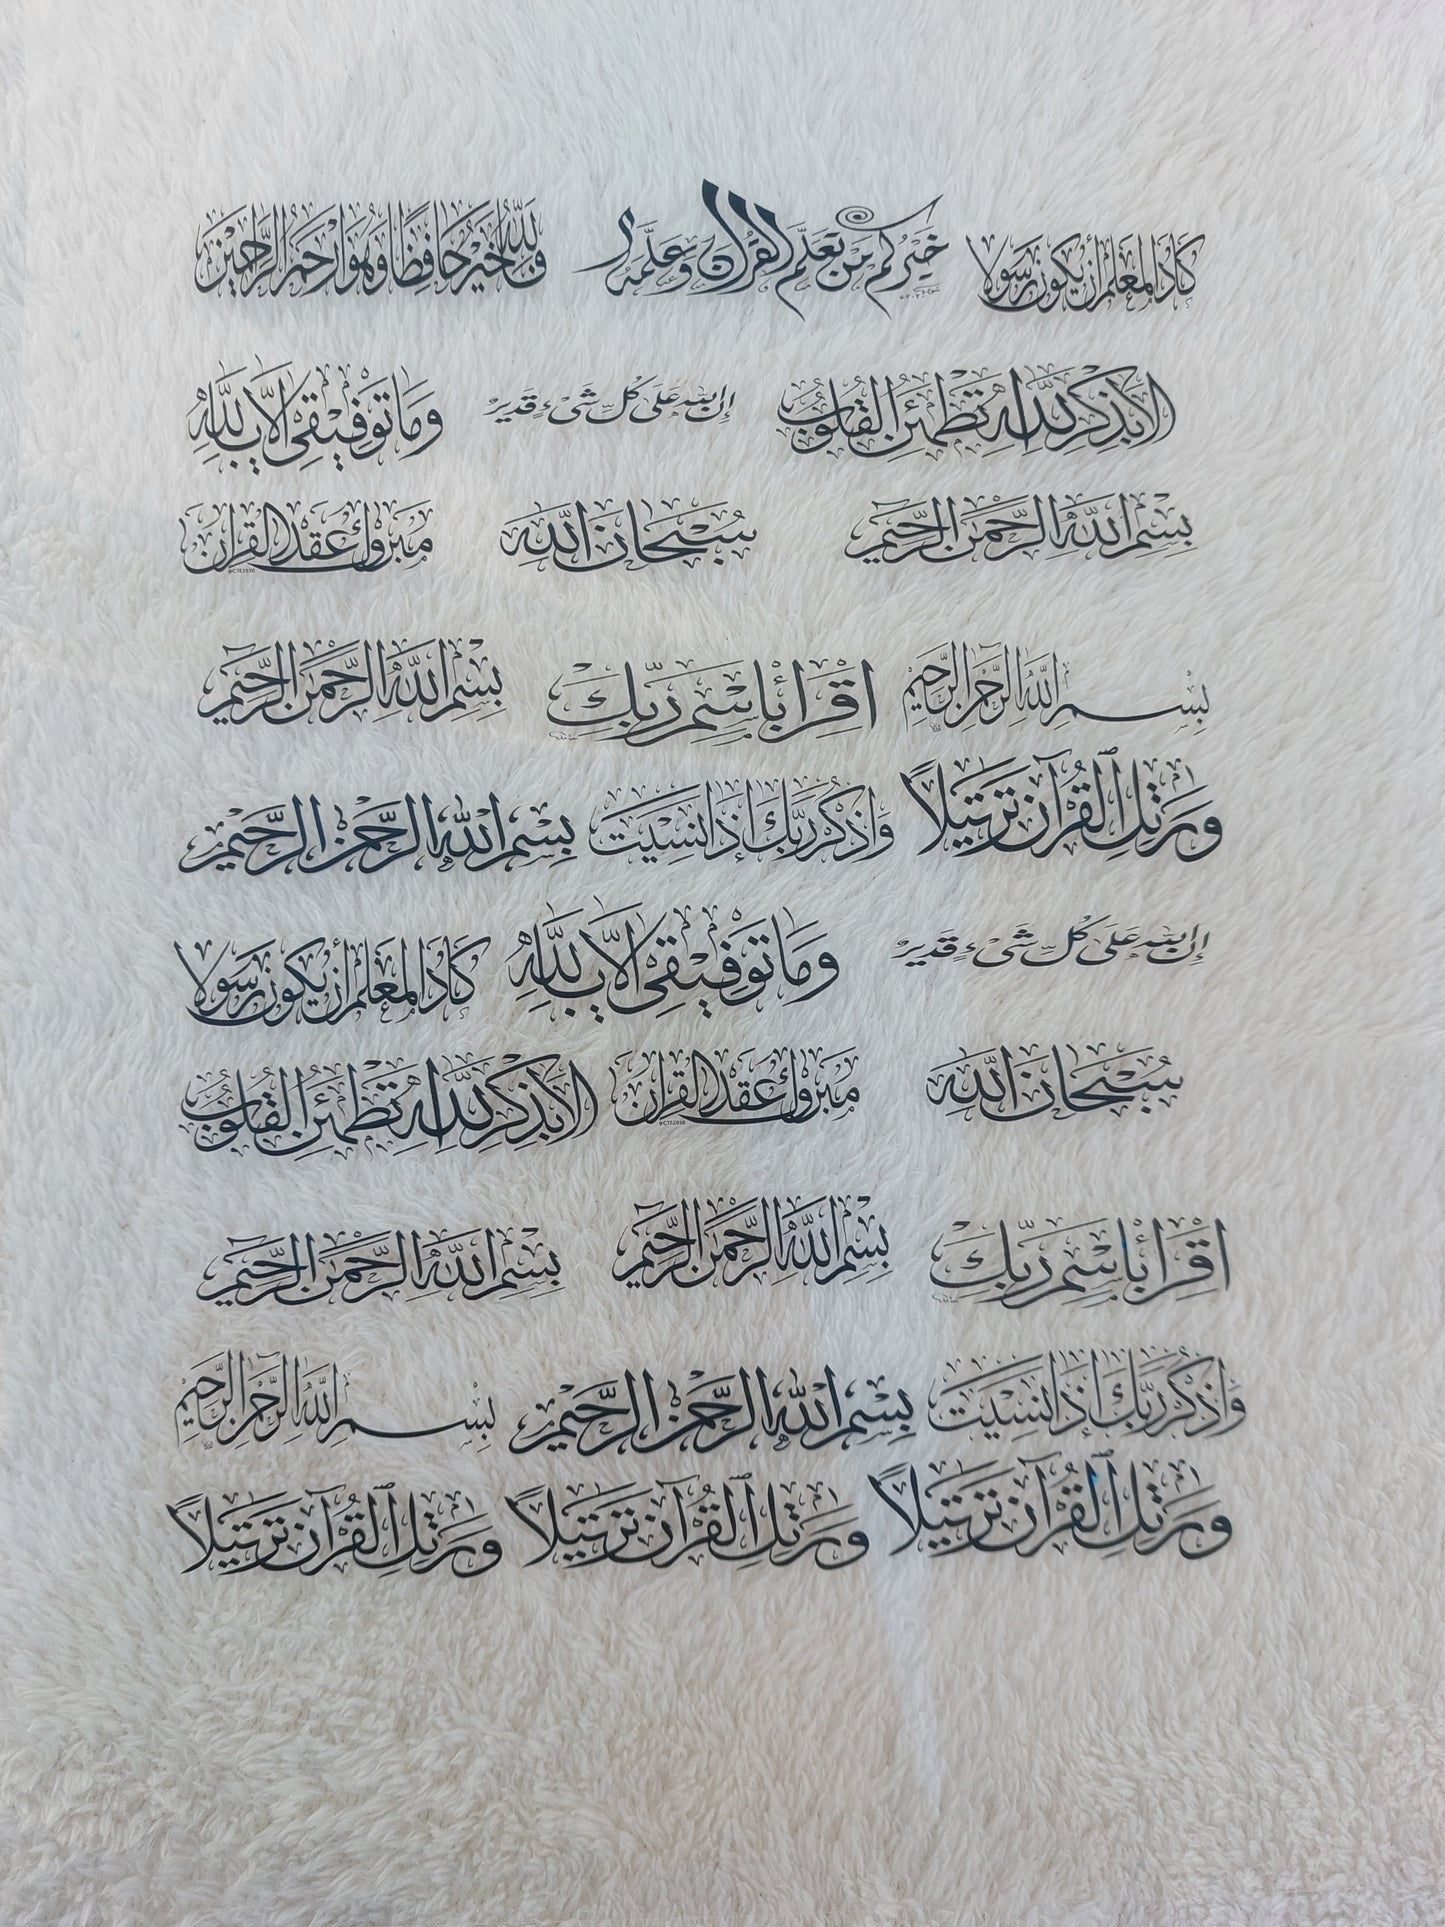 كاد المعلم أن يكون رسولا خيركم من تعلم القرآن وعلمه فالله خير حافظا وهو أرحم الراحمين
الا بذكر الله تطمئن القلوب إن الله على كل شيء قدير وما توفيقي الا بالله
بسم الله الرحمن الرحيم سبحان الله مبروك عقد القران
@CTE2030
بسم الله الرحمن الرحيم اقرأ باسم ربك بسم الله الرحمن الرحيم
ورتل ٱلقرآن ترتيلاً واذكر ربك إذا نسيت بسم الله الرحمن الرحيم
إن الله على كل شيء قدير وما توفيقي الا بالله كاد المعلم أن يكون رسولا
سبحان الله مبروك عقد القران الا بذكر الله تطمئن القلوب
@CTE2030
اقرأ باسم ربك بسم الله الرحمن الرحيم بسم الله الرحمن الرحيم
واذكر ربك إذا نسيت بسم الله الرحمن الرحيم بسم الله الرحمن الرحيم
ورتل ٱلقرآن ترتيلاً ورتل ٱلقرآن ترتيلاً ورتل ٱلقرآن ترتيلاً